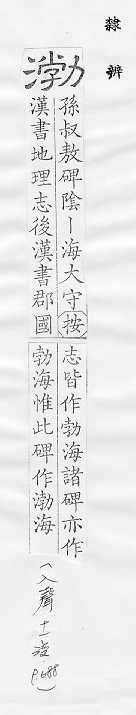 隸辨
渤
孫叔敖碑陰丨海大守按
漢書地理志後漢書郡國
志皆作勃海諸碑亦作
勃海惟此碑作渤海
(入聲十一沒 P.688)